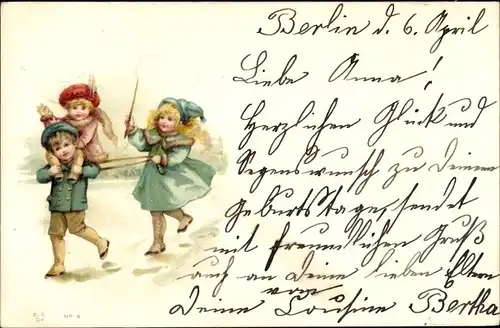 Berlin d. 6. April
Liebe Anna!
Herzlichen Glück und
Segenswunsch zu Deinem
Geburtstage, sendet
mit freundlichen Gruß
auch an Deine lieben Eltern
von
Deine Cousine Bertha
No 5